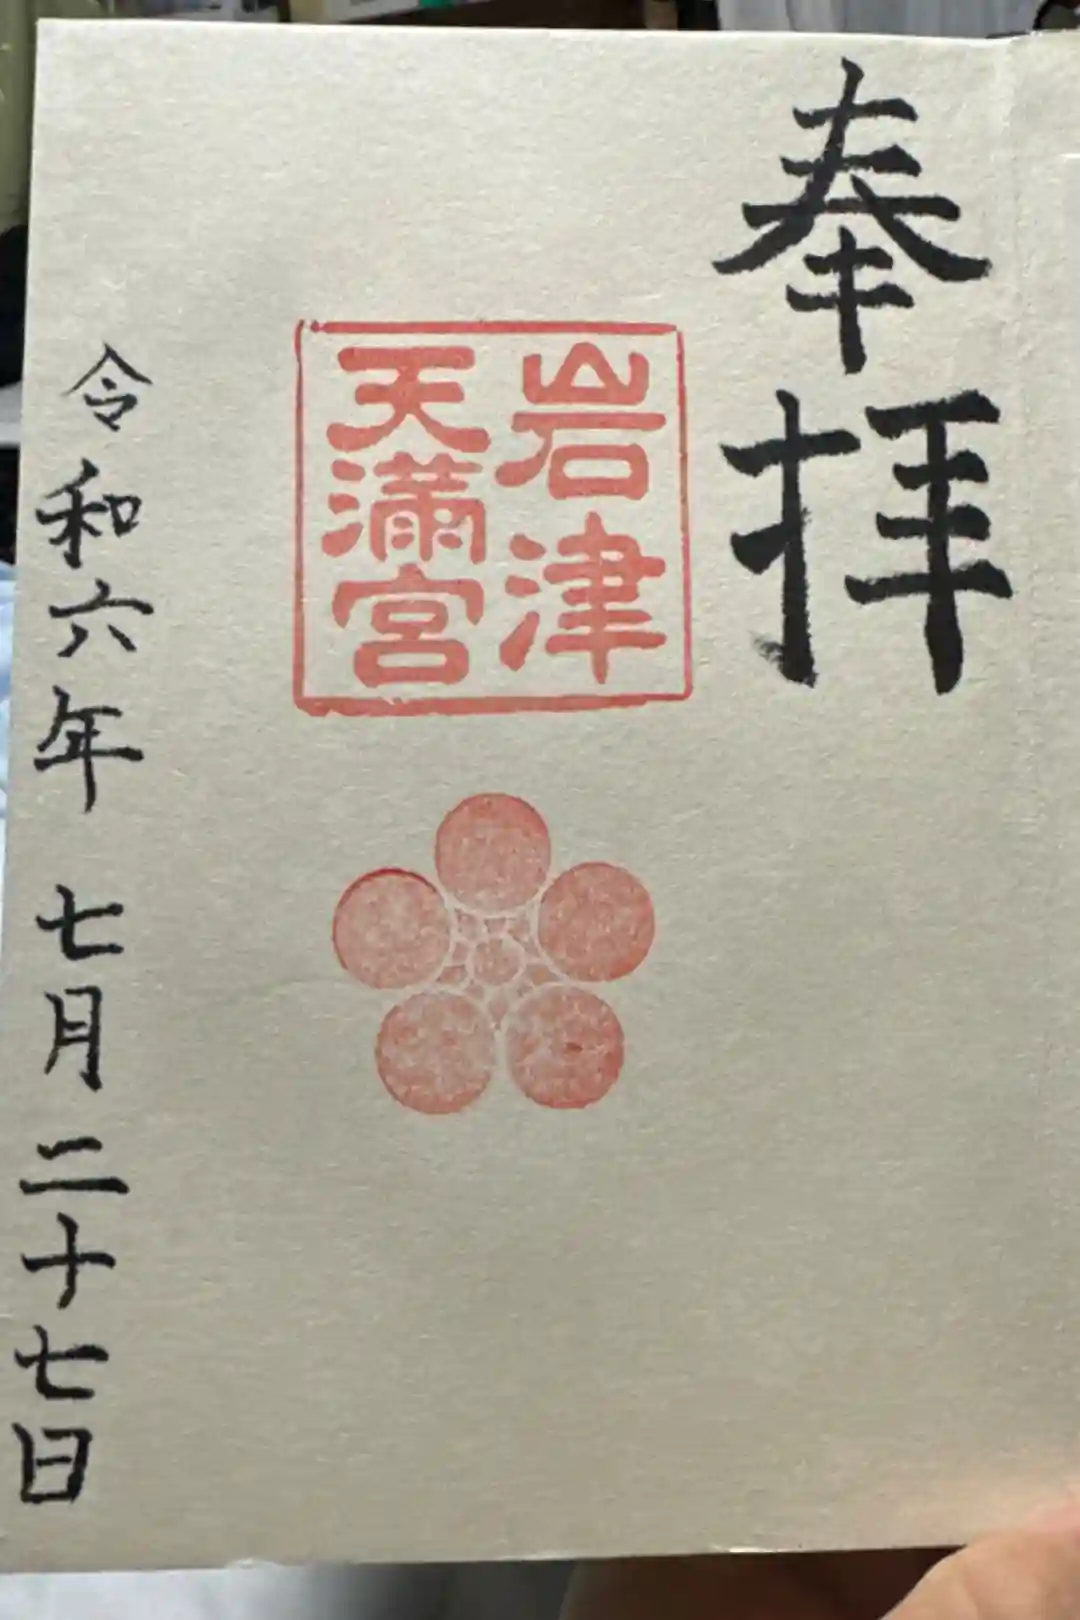 奉拝
岩津
天満宮
令和六年 七月二十七日